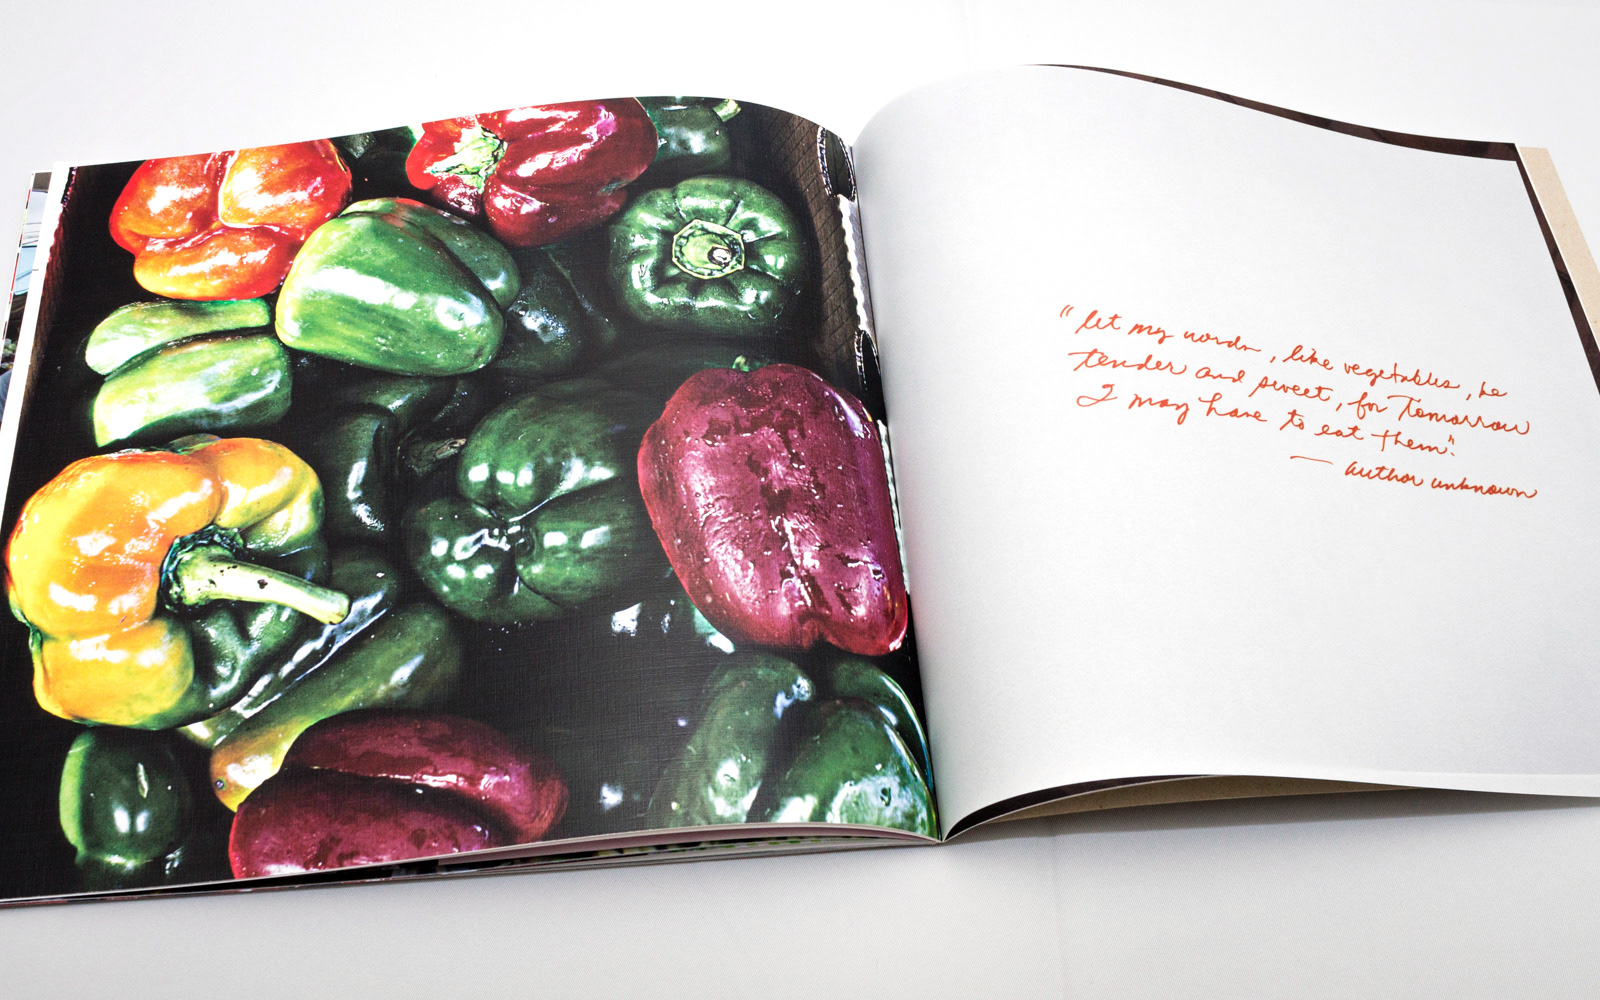 "let my words, like vegetables, be
tender and sweet, for tomorrow
I may have to eat them".
— author unknown